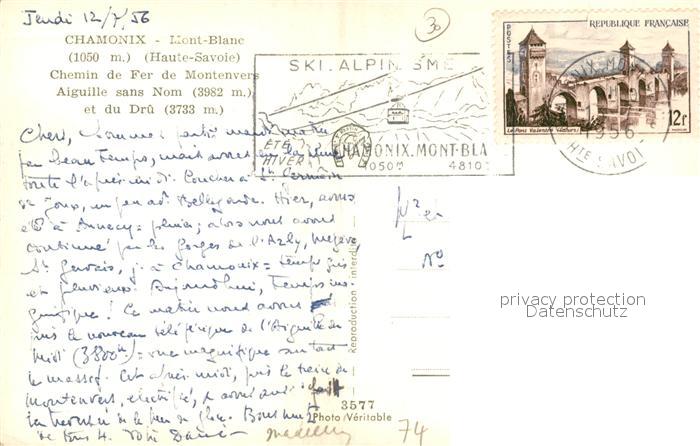 Jeudi 12/7/56
30
CHAMONIX - Mont-Blanc
(1050 m.) (Haute-Savoie)
Chemin de Fer de Montenvers
Aiguille sans Nom (3982 m.)
et du Drû (3733 m.)
SKI. ALPINISME
ÉTÉ
HIVER
CHAMONIX.MONT-BLA
1050M 4810
POSTES
REPUBLIQUE FRANÇAISE
12f
Le Pont Valentré (Cahors)
1956
HTE SAVOIE
Chers, sommes partis mardi matin
par beau temps, mais avons eu la pluie
toute l'après-midi. Coucher à St Germain
de Joux, un peu av. Bellegarde. Hier, avons
été à Annecy = pluie; alors nous avons
continué par les Gorges de l'Arly, Megève,
St Gervais, j. à Chamonix = temps gris
et pluvieux. Aujourd'hui, temps ma-
gnifique! Ce matin nous avons
pris le nouveau téléférique de l'Aiguille du
Midi (3800m) = vue magnifique sur tout
le massif. Cet après-midi, pris le train du
Montenvers, électrifié, et avons fait
la traversée de la mer de glace.
de tous 4.
M. et
Reproduction interdite
3577
Photo Véritable
74
privacy protection
Datenschutz